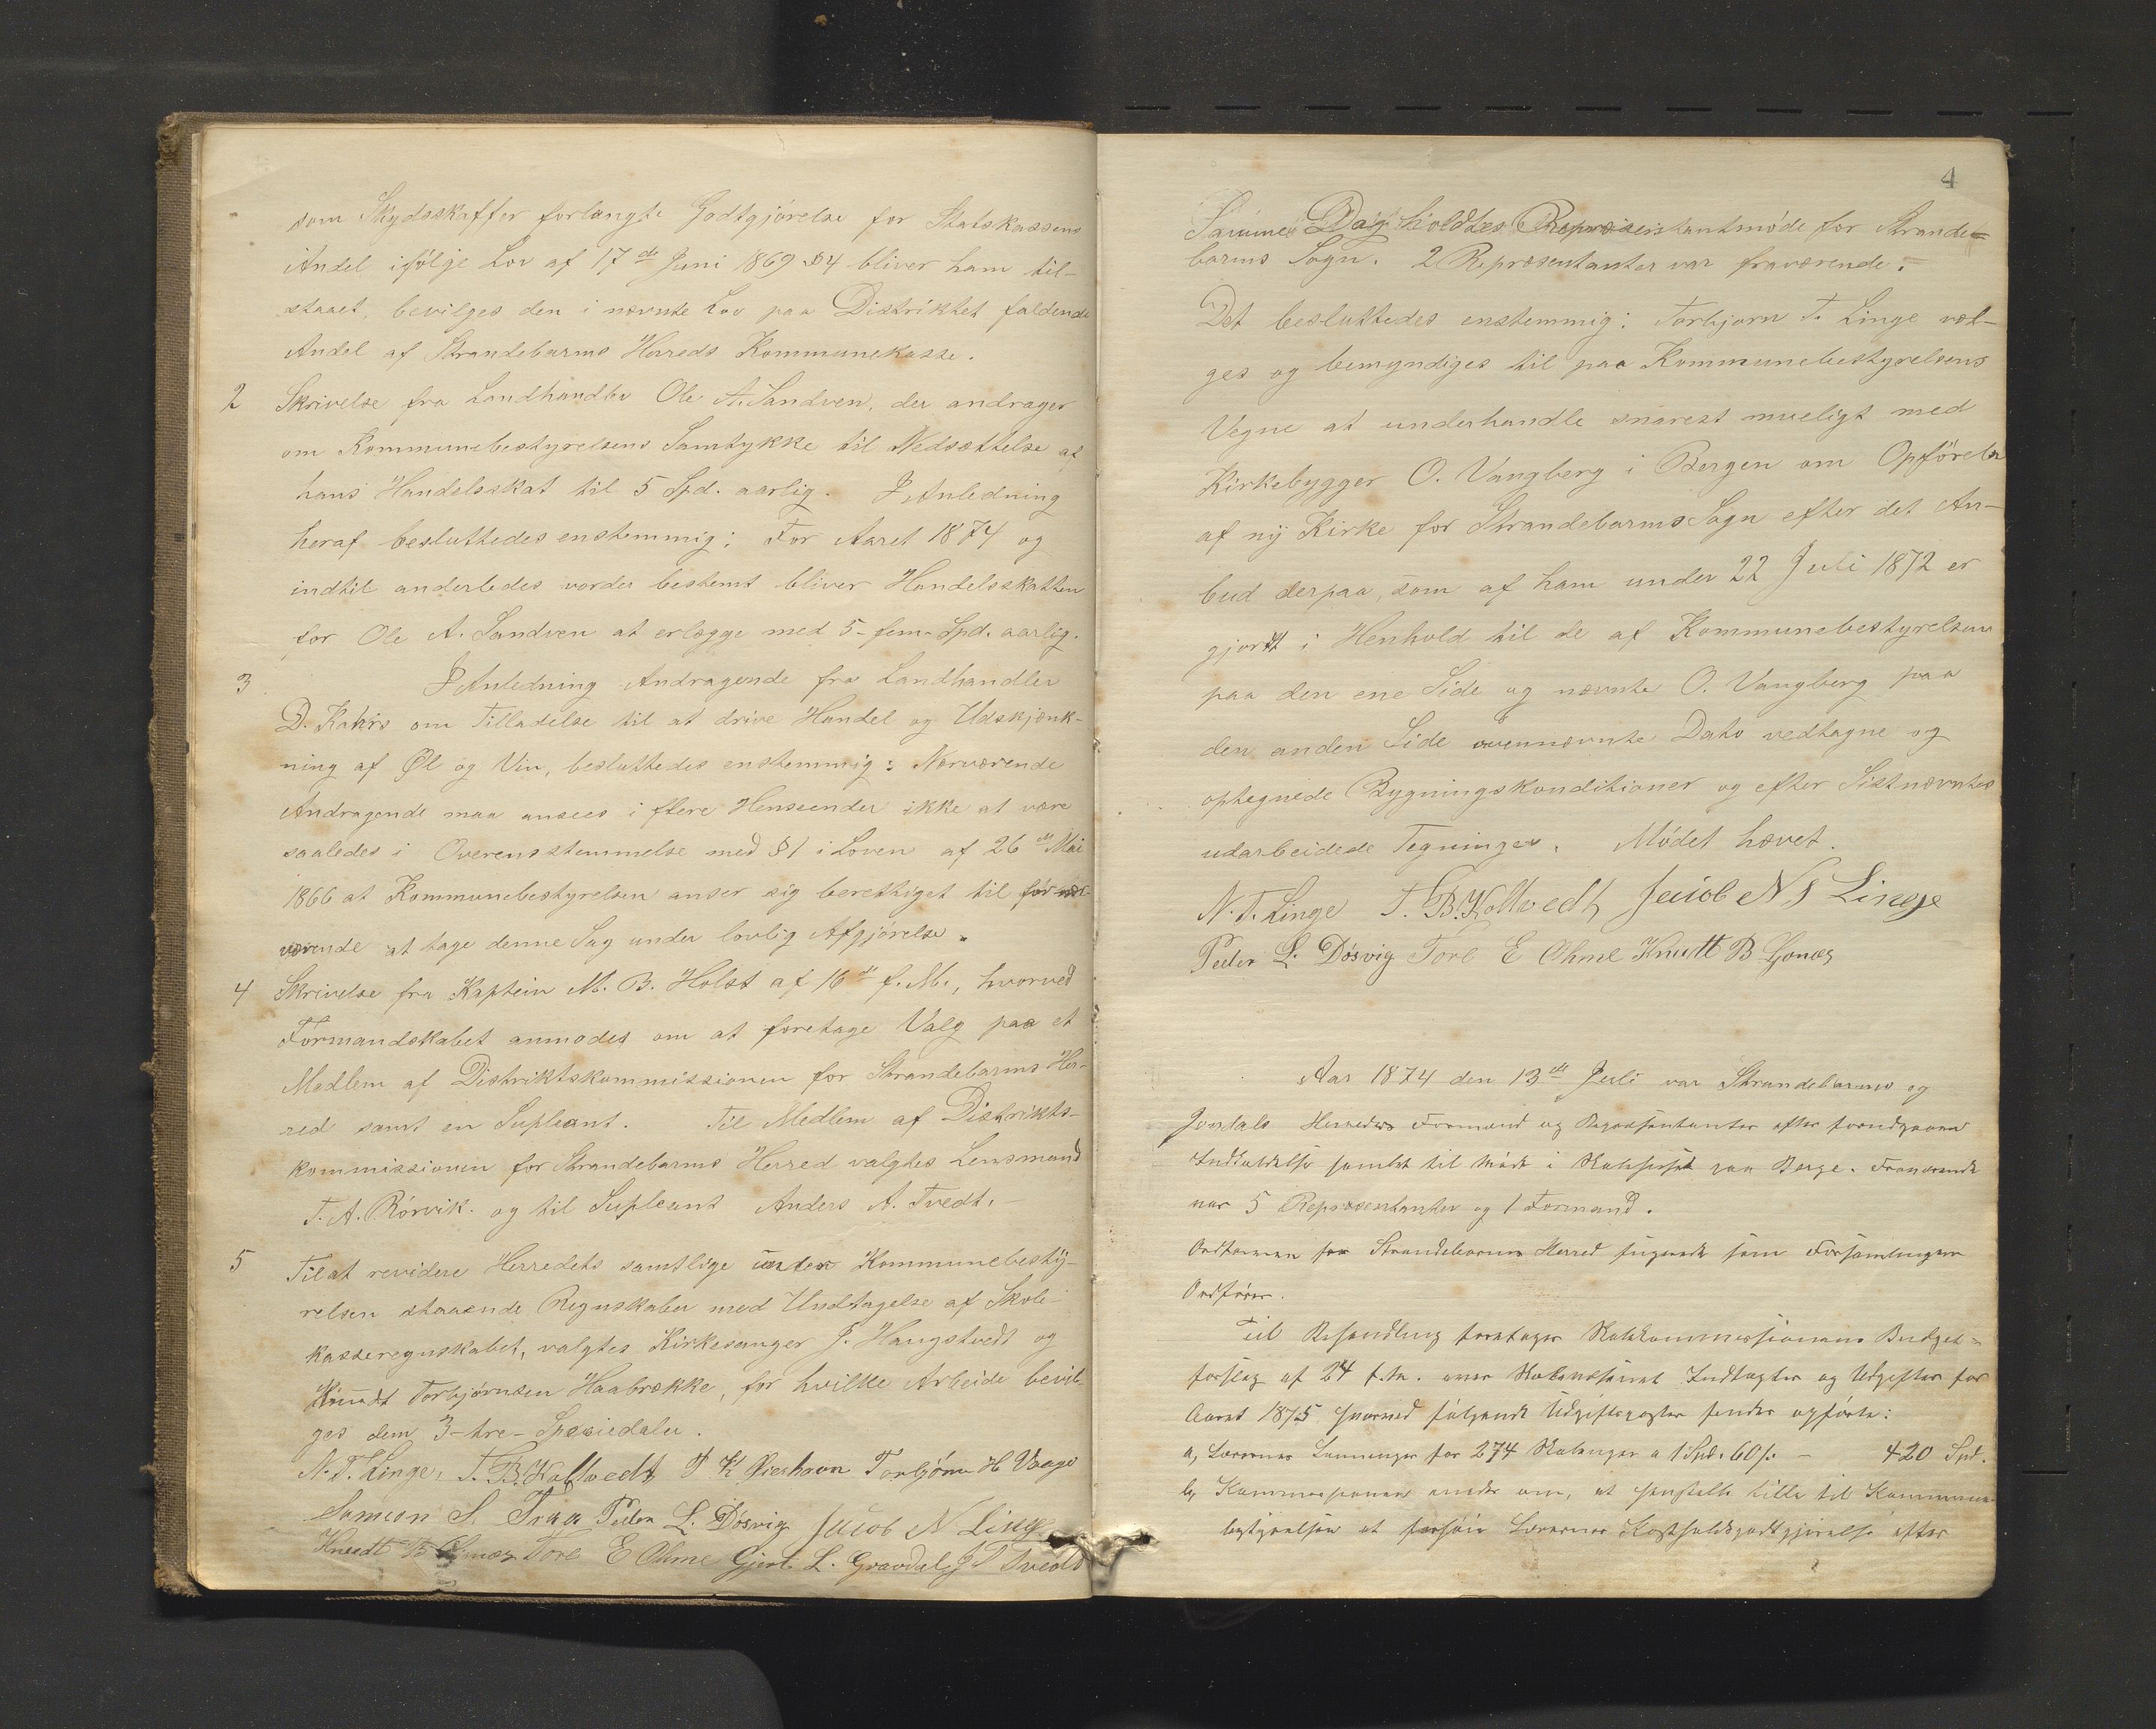 som Skydsskaffer forlangte Godtgjörelse for Statskassens
Andel ifölge Lov af 17de Juni 1869 §4 bliver ham til-
staaet, bevilges den i nævnte Lov paa Distriktet faldende
Andel af Strandebarms Herreds Kommunekasse.
2 Skrivelse fra Landhandler Ole A. Sandven, der andrager
om Kommunebestyrelsens Samtykke til Nedsættelse af
hans Handelsskat til 5 Spd. aarlig. I Anledning
heraf besluttedes enstemmig: For Aaret 1874 og
indtil anderledes vorder bestemt bliver Handelsskatten
for Ole A. Sandven at erlægge med 5-fem-Spd. aarlig.
3 I Anledning Andragende fra Landhandler
D. Kahrs om Tilladelse til at drive Handel og Udskjænk-
ning af Øl og Vin, besluttedes enstemmig: Nærværende
Andragende maa ansees i flere Henseender ikke at være
saaledes i Overensstemmelse med §1 i Loven af 26de Mai
1866 at Kommunebestyrelsen anser sig berettiget til for nær-
værende at tage denne Sag under lovlig Afgjörelse.
4 Skrivelse fra Kaptein M. B. Holst af 16de f. M., hvorved
Formandskabet anmodes om at foretage Valg paa et
Medlem af Distriktskommissionen for Strandebarms Her-
red samt en Supleant. Til Medlem af Distrikts-
kommissionen for Strandebarms Herred valgtes Lensmand
T. A. Rörvik. og til Supleant Anders A. Tvedt.
5 Til at revidere Herredets samtlige under Kommunebesty-
relsen staaende Regnskaber med Undtagelse af Skole-
kasseregnskabet, valgtes Kirkesanger J. Haugstvedt og
Knudt Torbjørnsen Haabrække, for hvilke Arbeide bevil-
ges dem 3-tre-Speciedaler.
N. T. Linge, T. B. Kollvedt P K Øierhavn Torbjörn H Vaage
Samson S. Traa Peder L. Dösvig Jacob N Linge
Knudt B Gjönæs Tore E Ohme Gjert L. Gravdal J T Tvedt
4
Samme Dag holdtes Repræsentantmöde for Strande-
barms Sogn. 2 Repræsentanter var fraværende.
Det besluttedes enstemmig: Torbjorn T. Linge væl-
ges og bemyndiges til paa Kommunebestyrelsens
Vegne at underhandle snarest mueligt med
Kirkebygger O. Vangberg i Bergen om Opförelse
af ny Kirke for Strandebarms Sogn efter det An-
bud derpaa, som af ham under 22 Juli 1872 er
gjordt i Henhold til de af Kommunebestyrelsen
paa den ene Side og nævnte O. Vangberg paa
den anden Side ovennævnte Dato vedtagne og
optegnede Bygningskonditioner og efter Sistnævntes
udarbeidede Tegninger. Mödet hævet.
N. T. Linge T. B. Kollvedt Jacob N S Linge
Peder L. Dösvig Tore E Ohme Knutt B Gjonæs
Aar 1874 den 13de Juli var Strandebarms og
Jondals Herreders Formænd og Repræsentanter efter foregaaende
Indkaldelse samlet til Möde i Skolehuset paa Berge. Fraværende
var 5 Repræsentanter og 1 Formand.
Ordføreren for Strandebarms Herred fungerede som Forsamlingens
Ordförer.
Til Behandling foretoges Skolekommissionens Budget-
forslag af 24 f. M. over Skolevæsenets Indtægter og Udgifter for
Aaret 1875 hvorved fölgende Udgiftsposter findes opförte:
a, Lærernes Lønninger for 274 Skoleuger a 1 Spd. 60 s. - 420 Spd.
b, Kommissionen ander om, at henstille til Kommune-
bestyrelsen at forhöie Lærernes Kostholdsgodtgjörelse efter